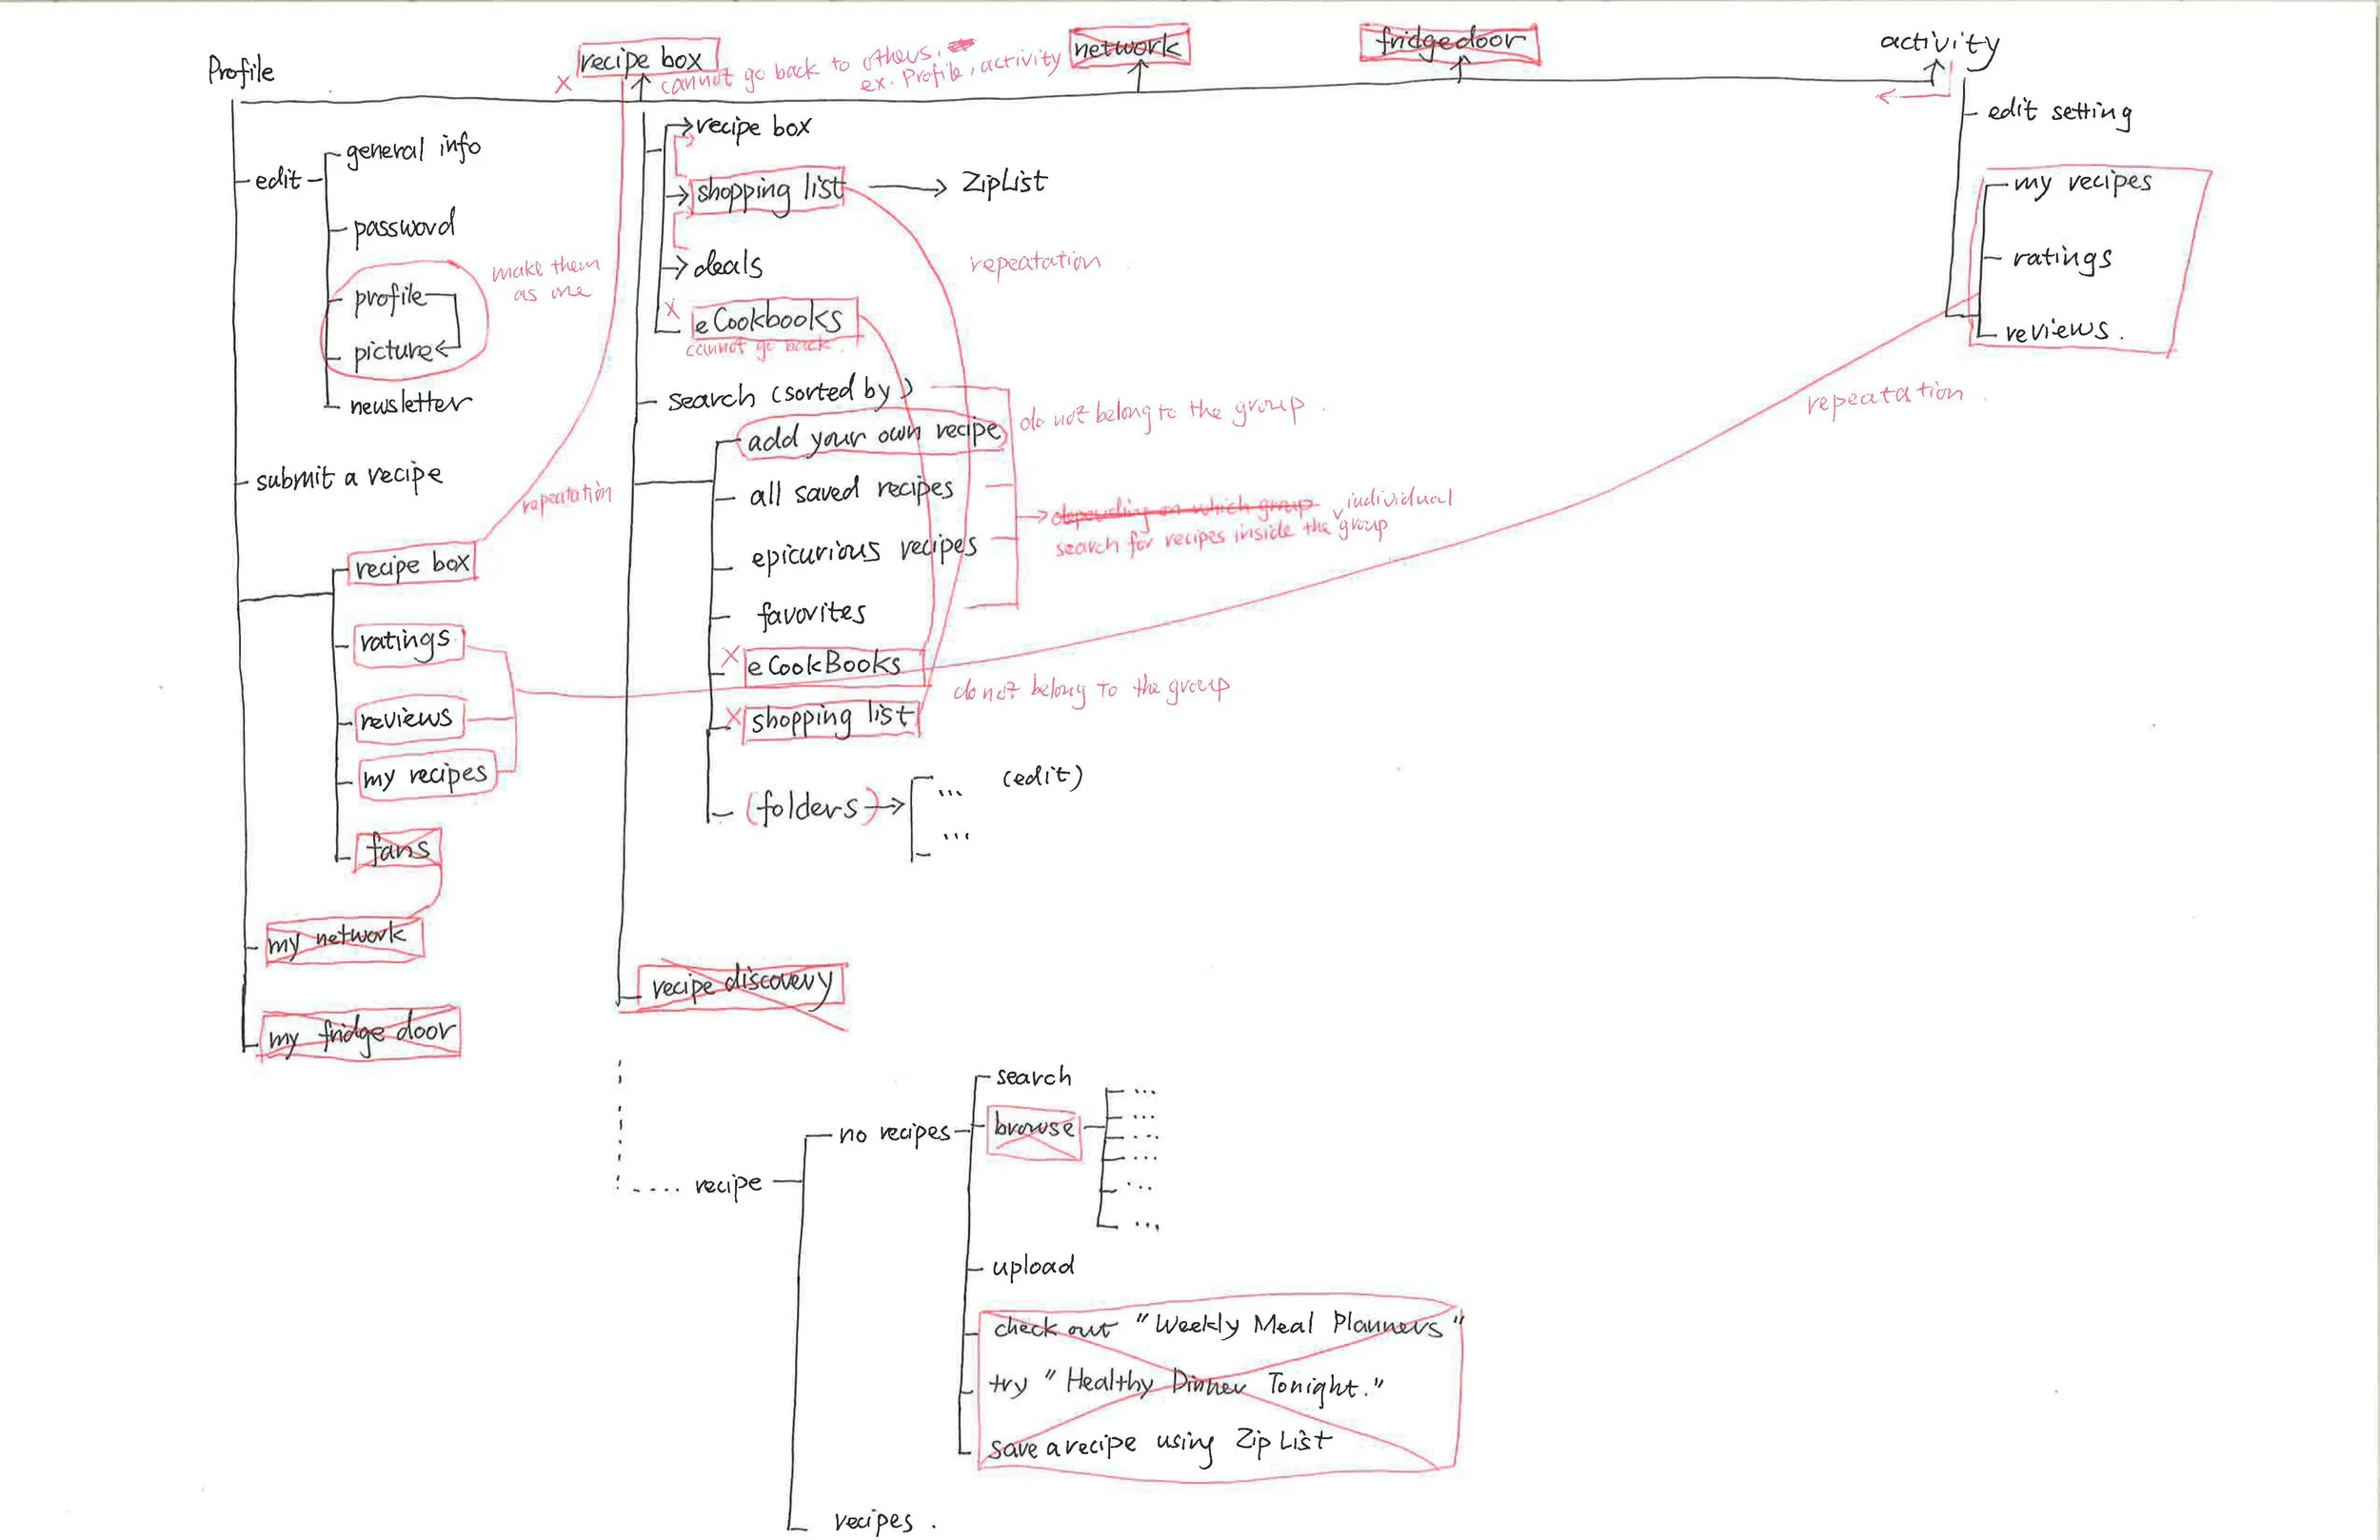 Profile
edit
general info
password
profile
picture
newsletter
make them
as one
submit a recipe
repeatation
recipe box
ratings
reviews
my recipes
fans
my network
my fridge door
recipe box
x cannot go back to others.
ex. Profile, activity
recipe box
shopping list
ZipList
deals
repeatation
x
eCookbooks
cannot go back.
search (sorted by)
do not belong to the group.
add your own recipe
all saved recipes
depending on which group individual
search for recipes inside the group
epicurious recipes
favorites
x eCookBooks
do not belong to the group
x shopping list
(folders)
...
...
(edit)
recipe discovery
recipe
no recipes
search
browse
...
...
...
...
...
...
upload
check out "Weekly Meal Planners"
try "Healthy Dinner Tonight."
save a recipe using Zip List
recipes.
network
fridgedoor
activity
edit setting
my recipes
ratings
reviews.
repeatation.